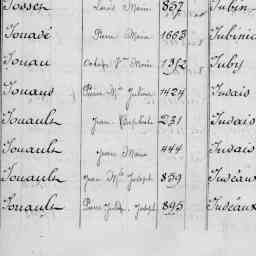 Jossen Louis Marie 857 Jubin
Jouadé Pierre Marie 1663
Jouan 1352 Juby
Jouans Pierre Mie Julien 1424 Judais
Jouault Jean Baptiste 231 Judais
Jouault Jean Marie 444 Judais
Jouault Jean Mie Joseph 859 Judéaux
Jouault Pierre Joseph 895 Judéaux